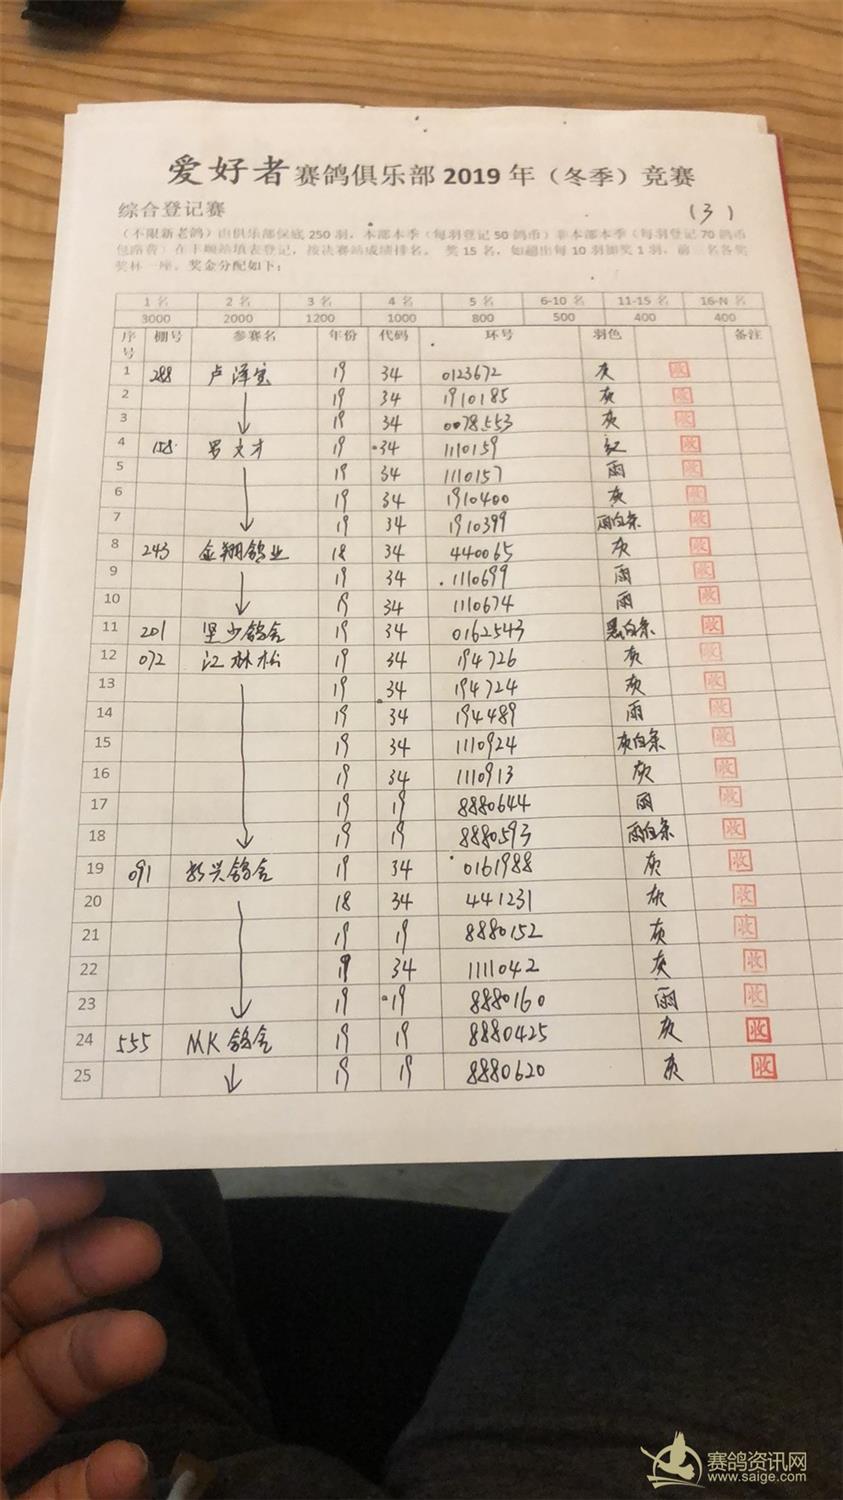 爱好者赛鸽俱乐部2019年（冬季）竞赛
综合登记赛 (3)
（不限新老鸽）由俱乐部保底250羽，本部本季（每羽登记50鸽币）非本部本季（每羽登记70鸽币
包路费）在丰顺站填表登记，按决赛站成绩排名。 奖15名，如超出每10羽加奖1羽，前三名各奖
奖杯一座。奖金分配如下：
1名 2名 3名 4名 5名 6-10名 11-15名 16-N名
3000 2000 1200 1000 800 500 400 400
序号 棚号 参赛名 年份 代码 环号 羽色 备注
1 288 卢泽宝 19 34 0123672 灰 收
2 19 34 1910185 灰 收
3 19 34 0078553 灰 收
4 158 罗文才 19 34 1110159 红 收
5 19 34 1110157 雨 收
6 19 34 1910400 灰 收
7 19 34 1910399 雨白条 收
8 243 金翔鸽业 18 34 440065 灰 收
9 19 34 1110699 雨 收
10 19 34 1110674 雨 收
11 201 坚少鸽舍 19 34 0162543 黑白条 收
12 072 江林松 19 34 194726 灰 收
13 19 34 194724 灰 收
14 19 34 194489 雨 收
15 19 34 1110924 灰白条 收
16 19 34 1110913 灰 收
17 19 19 8880644 雨 收
18 19 19 8880593 雨白条 收
19 091 新兴鸽舍 19 34 0161988 灰 收
20 18 34 441231 灰 收
21 19 19 8880152 灰 收
22 19 34 1111042 灰 收
23 19 19 8880160 雨 收
24 555 MK鸽舍 19 19 8880425 灰 收
25 19 19 8880620 灰 收
赛鸽资讯网
www.saige.com